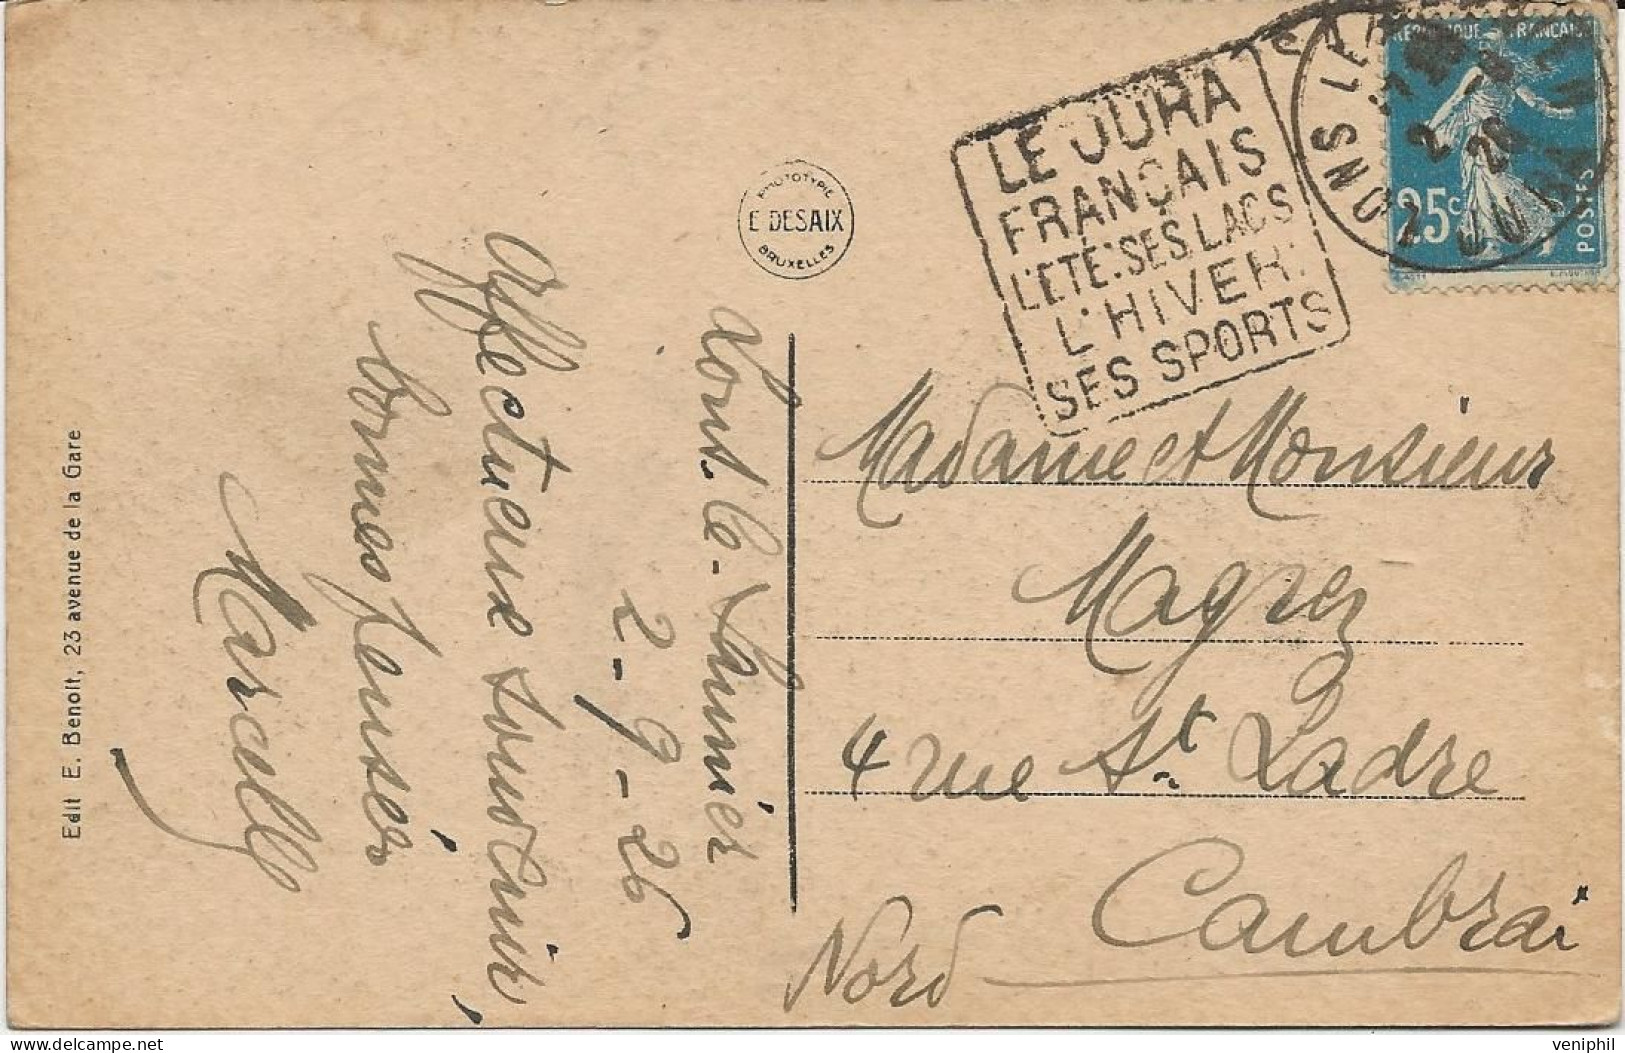 Edit E. Benoit, 23 avenue de la Gare
PHOTOTYPIE
E DESAIX
BRUXELLES
Lons-le-Saunier
2-9-26
Affectueux souvenir,
bonnes pensées
Marcelle
LE JURA
FRANÇAIS
L'ETÉ:SES LACS
L'HIVER:
SES SPORTS
RÉPUBLIQUE FRANÇAISE
25c
POSTES
LONS LE
JURA
Madame et Monsieur
Magrez
4 rue St Ladre
Cambrai
Nord
veniphil